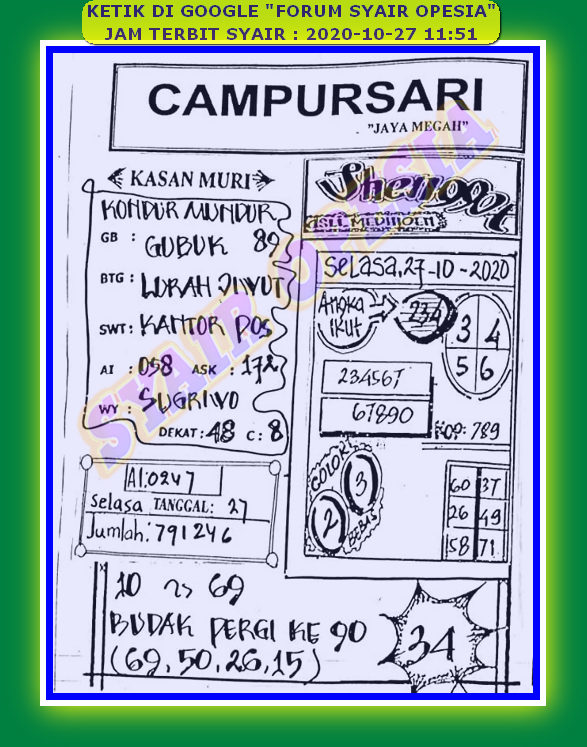 KETIK DI GOOGLE "FORUM SYAIR OPESIA"
JAM TERBIT SYAIR : 2020-10-27 11:51
CAMPURSARI
"JAYA MEGAH"
KASAN MURI
KONDUR MUNDUR
GB : GUBUK 89
BTG : LURAH JIWUT
SWT : KANTOR POS
AI : 058 ASK : 172
WY : SUGRIWO
DEKAT : 48 C : 8
AI:0247
Selasa TANGGAL: 27
Jumlah: 791246
Shenogot
ASLI
Selasa, 27-10-2020
Angka
ikut
234
3 4
5 6
234567
67890
KOP: 789
COLOK
2 3
BEBAS
60 37
26 49
58 71
10 ~> 69
BUDAK PERGI KE 90
(69, 50, 26, 15)
34
SYAIR OPESIA